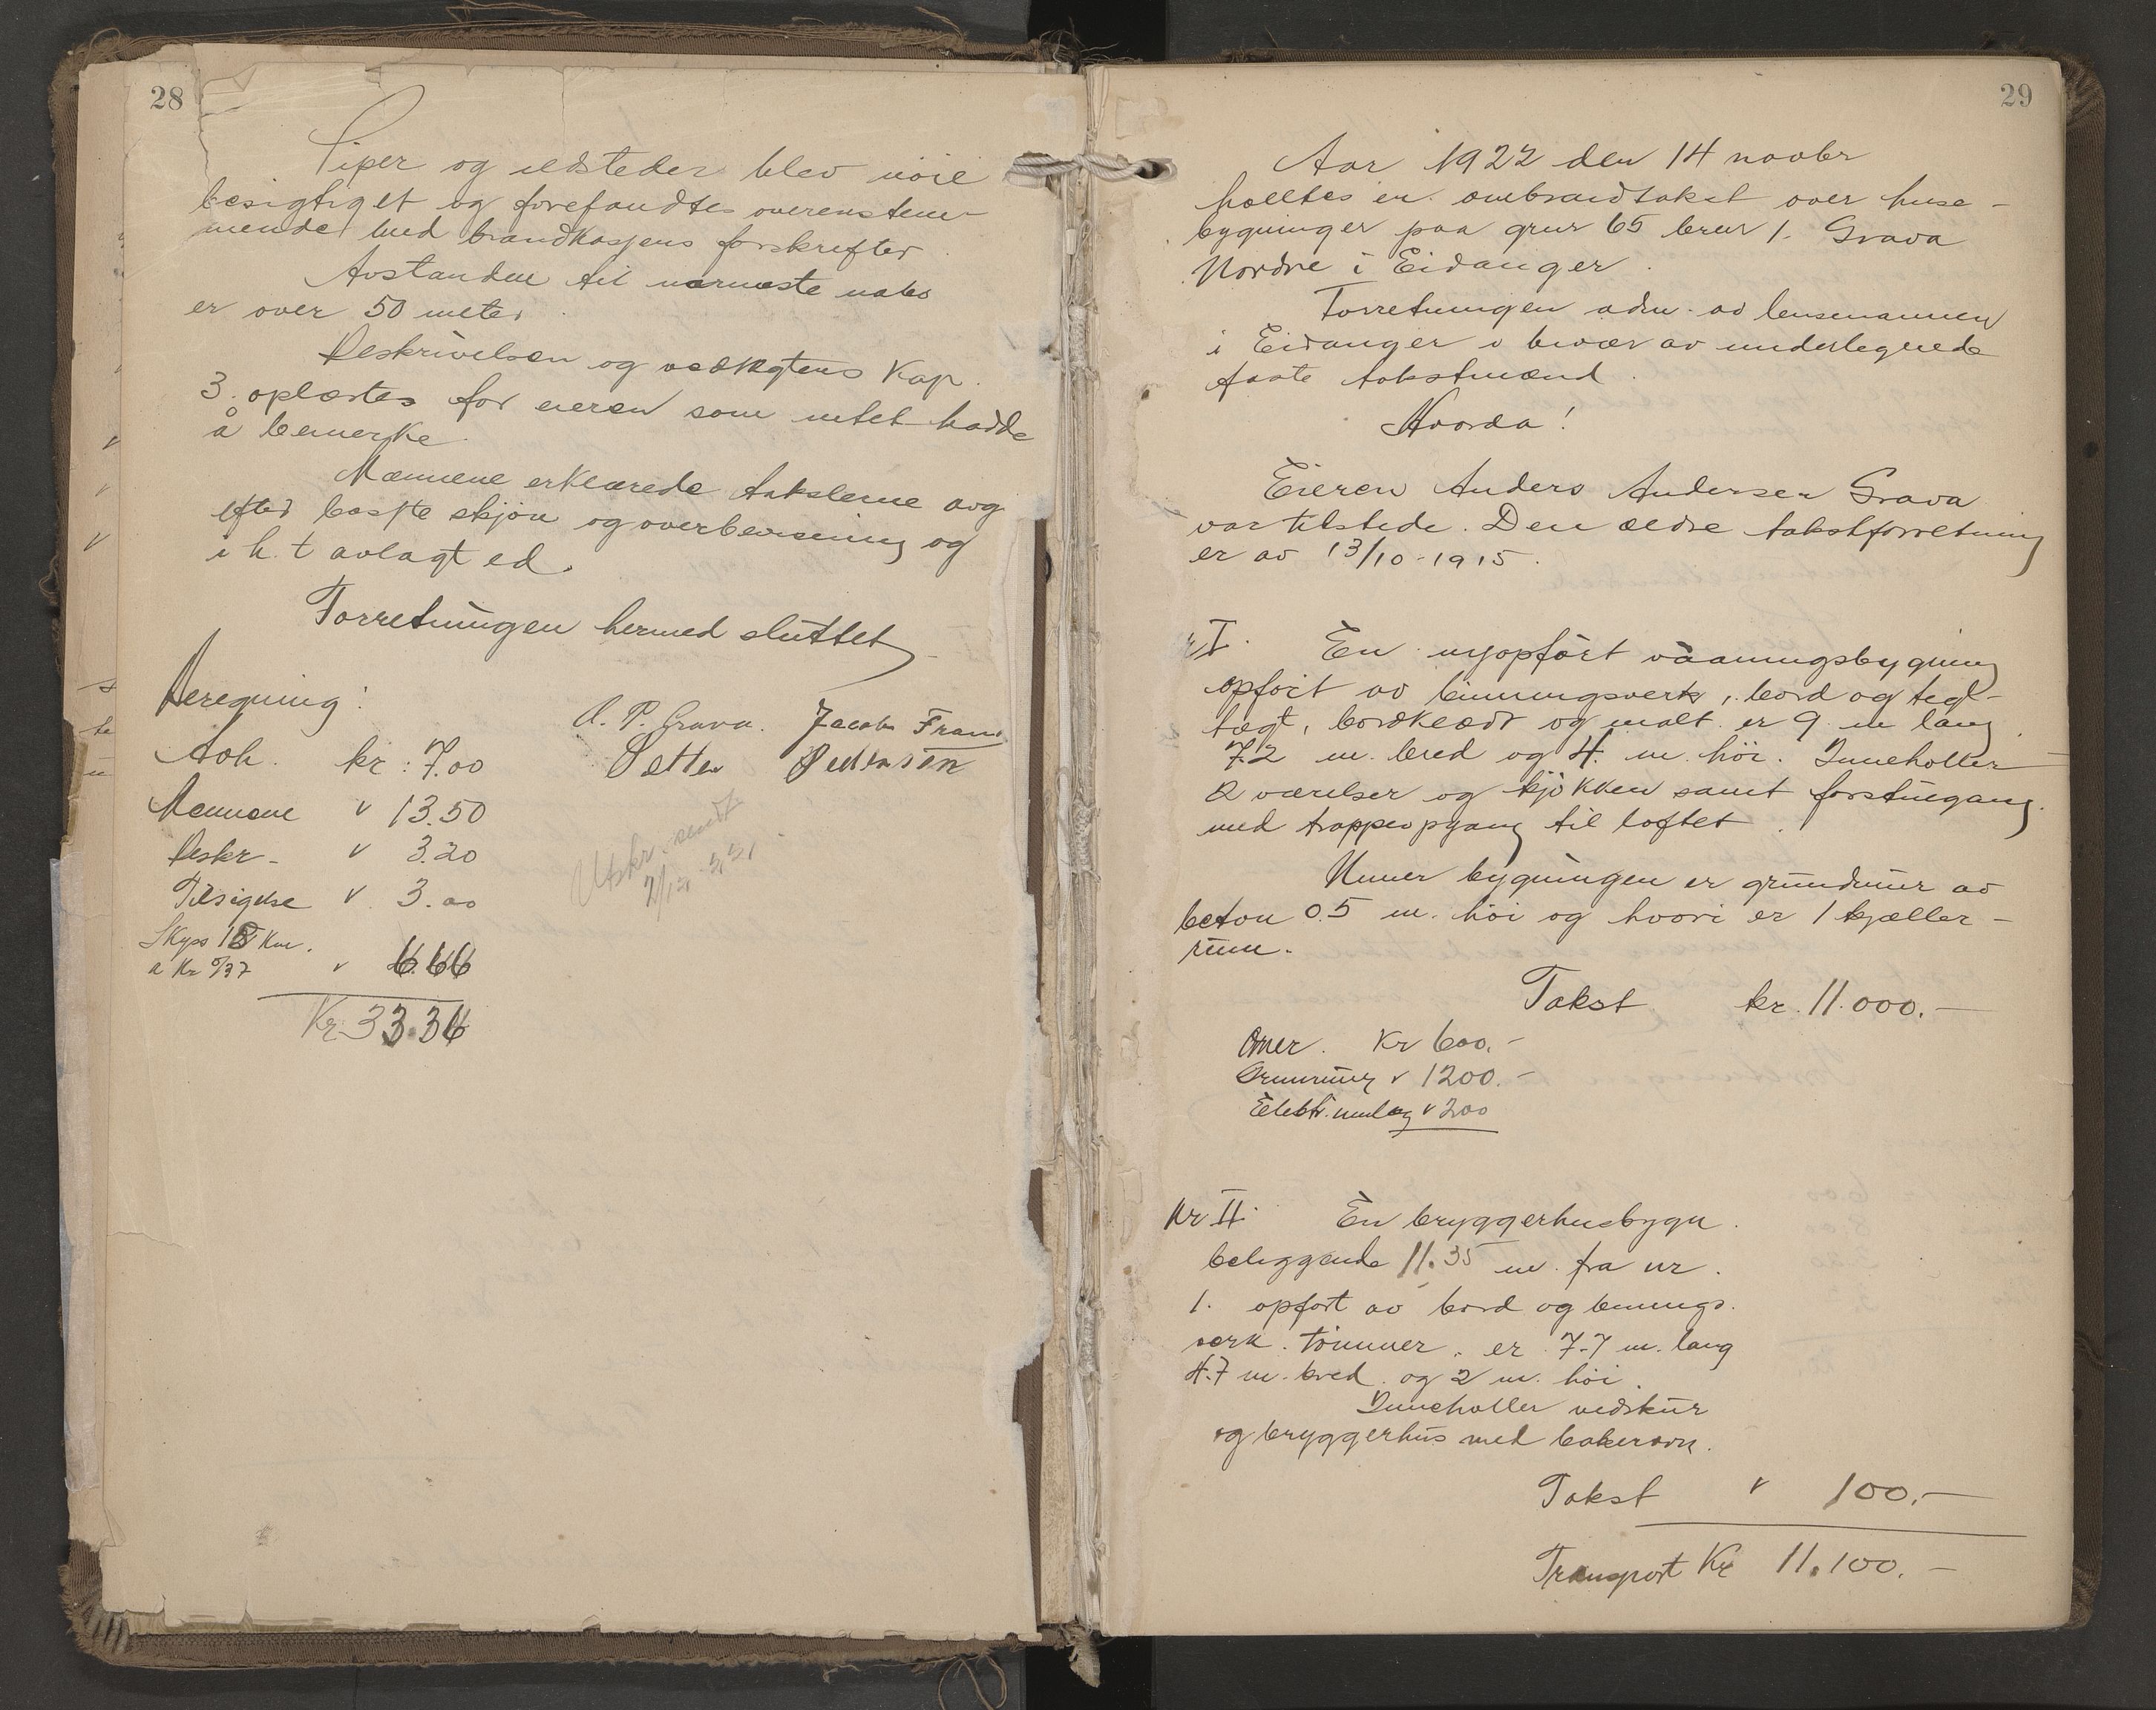 28
Piper og ildsteder blev nöie
besigtiget og forefandtes overenstem-
mende med brandkassens forskrifter
Avstanden til nærmeste nabo
er over 50 meter.
Beskrivelsen og vedtegtens Kap.
3. oplæstes for eieren som intet hadde
å bemerke.
Mænnene erklærede takslerne avg
efter beste skjön og overbevisning og
i h. t avlagt ed.
Forretningen hermed sluttet
Beregning:
A. P. Grava. Jacob Frano
Petter Pedersen
Avh. kr: 7.00
Mænnene " 13.50
Beskr- " 3.20
Tilsigelse " 3.00
Skyss 18 Km.
a Kr 0/37 " 6.66
Kr 33.36
Utskr. sendt
29
Aar 1922 den 14 novbr
holltes en ombrandtakst over huse-
bygninger paa gnr 65 bnr 1. Grava
Nordre i Eidanger.
Forretningen adm. av lensmannen
i Eidanger o bivær av undertegnede
faste takstmænd.
Hvorda!
Eieren Anders Andersen Grava
var tilstede. Den ældre takstforretning
er av 13/10-1915.
r I. En nyopfört vaaningsbygning
opfört av binningsverk, bord og tegl-
tægt, bordklædt og malt er 9 m lang
7.2 m. bred og 4. m. höi. Inneholler
2 værelser og kjökken samt forstuegang.
med trappeopgang til loftet.
Unner bygningen er grundmur av
beton 0.5 m. höi og hvori er 1 kjæller-
rum.
Takst kr. 11.000.-
Ovner. Kr 600.-
Grunmur " 1200.-
Elektr. innlag " 200
Nr II. En bryggerhusbygn.
beliggende 11.35 m. fra nr.
1. opfört av bord og bennings.
verk. tömmer. er 7.7 m. lang
4.7 m. bred. og 2 m. höi.
Inneholler vedskur
og bryggerhus med bakerovn.
Takst " 100.-
Transport Kr 11.100.-